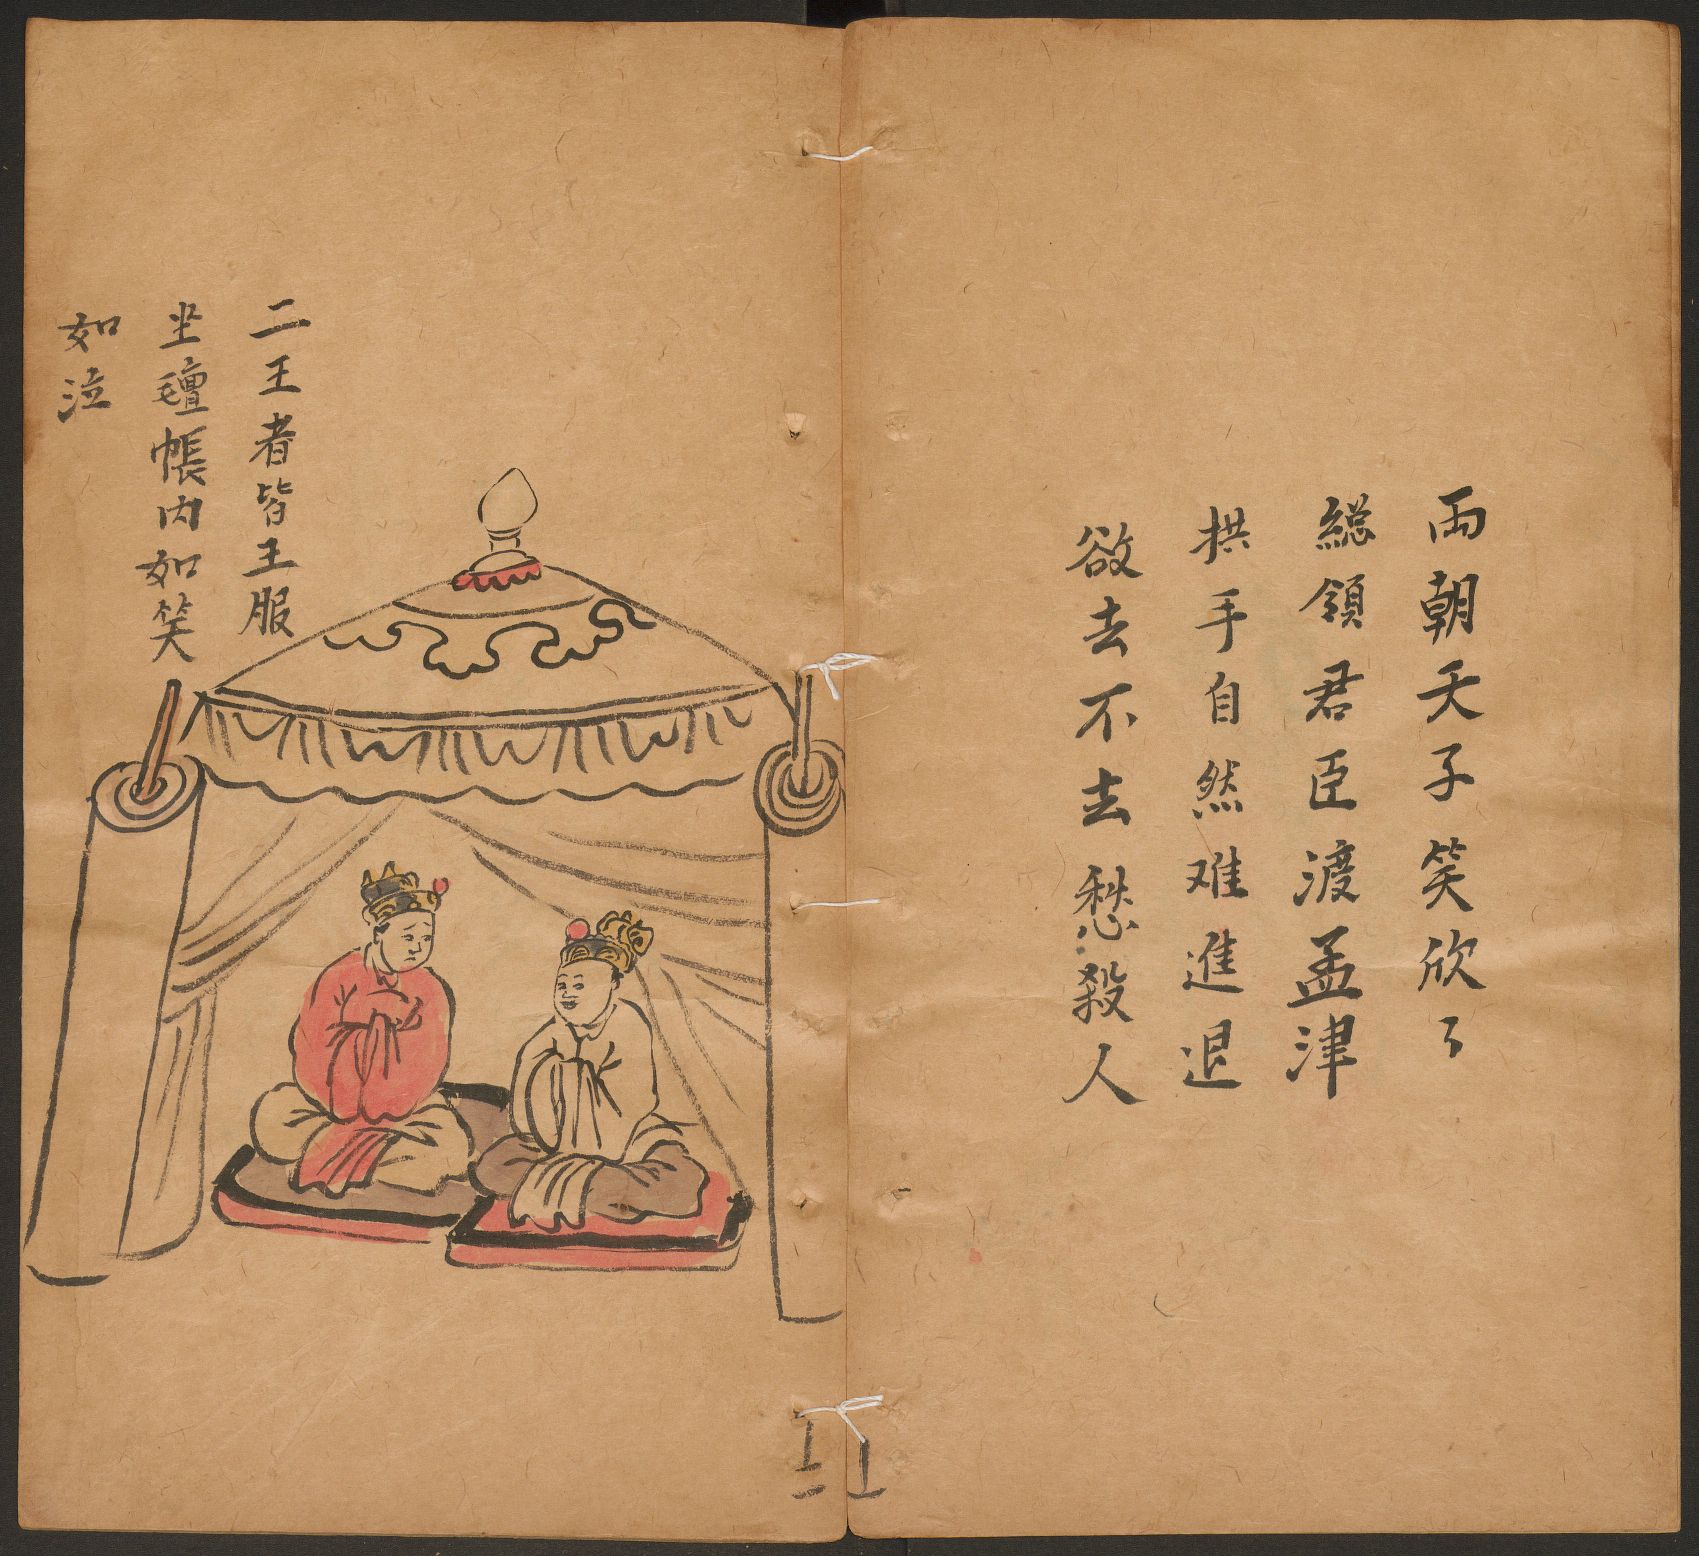 両朝天子笑欣〻
総領君臣渡孟津
拱手自然难進退
欲去不去愁殺人
二王者皆王服
坐氊帳内如笑
如泣